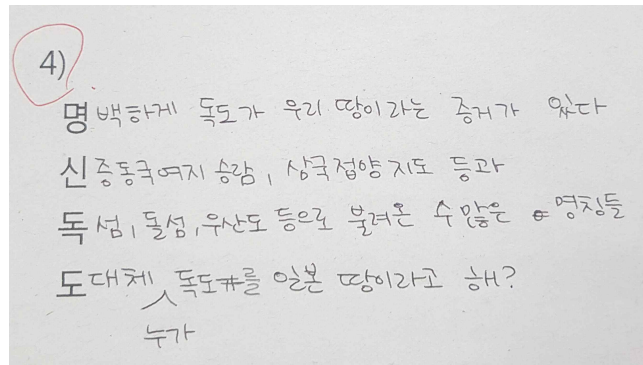 4)
명백하게 독도가 우리 땅이라는 증거가 있다
신증동국여지승람, 삼국접양지도 등과
독섬, 돌섬, 우산도 등으로 불려온 수많은 명칭들
도대체 누가 독도를 일본 땅이라고 해?